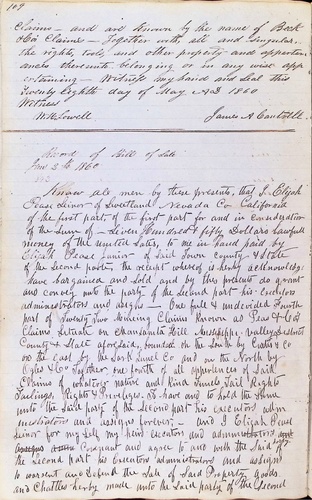 109
Claims - and are known by the name of Buck
& Co's Claims - Together with, all and singular
the rights, tools, and other property and apperten
ances thereunto belonging or in any wise app
ertaining - Witness my hand and seal this
Twenty Eighth day of May AD 1860
Witness
W.H. Lowell James A Cantrell
Record of Bill of Sale
June 2th 1860
Know all men by these presents, that I Elijah
Pease Seinor of Sweetland Nevada Co California
of the first part of the first part for and in consideration
of the Sum of - Seven Hundred & fifty Dollars Lawfull
money of the united States, to me in hand paid by
Elijah Pease Junior of Said Town County & State
of the Second part, the receipt whereof is hereby acknowledg
have bargained and Sold and by this presents do grant
and convey unto the party of the Second part his Executors
administrators and assigns - One full & undevided Fourth
part of Twenty Two mineing Claims Known as Pease & Co
Claims Situate on Manzanita Hill district
County & State aforesaid, bounded on the South by & Co
on the East by the Tunnel Co and on the North by
& Co Together one fourth of all of Said
Claims of whatever nature and Kind Tunels Tail Rights
Tailings, Rights & Privelages to have and to hold the Same
unto the Said party of the Second part his executors adm
inistrators and assigns forever - and I Elijah Pease
Seinor for my Self my heirs executors and administrators
Covenant and agree to and with the Said of
the Second part his Executors administrators and assigns
to warrent and defend the Sale of Said Property Goods
and Chattles hereby made unto the Said party of the Second